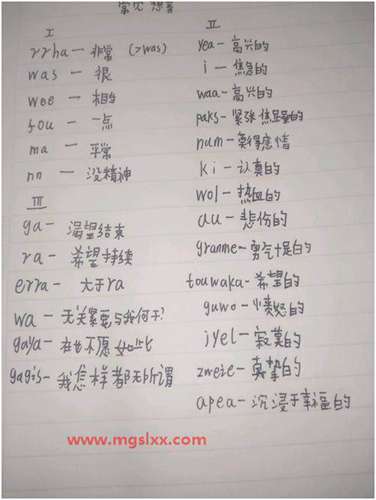 常见
I
rrha — 非常 (>was)
was — 很
wee — 相当
fou — 一点
ma — 平常
nn — 没精神
III
ga — 渴望结束
ra — 希望持续
erra — 大于ra
wa — 无关紧要与我何干?
gaya — 如此
gagis — 我怎样都无所谓
II
yea — 高兴的
i — 焦急的
waa — 高兴的
paks — 紧张
num — 莫得感情
ki — 认真的
wol — 热血的
au — 悲伤的
granme — 勇气十足的
touwaka — 希望的
guwo — 愤怒的
jyel — 寂寞的
zweie — 真挚的
apea — 沉浸于幸福的
www.mgslxx.com